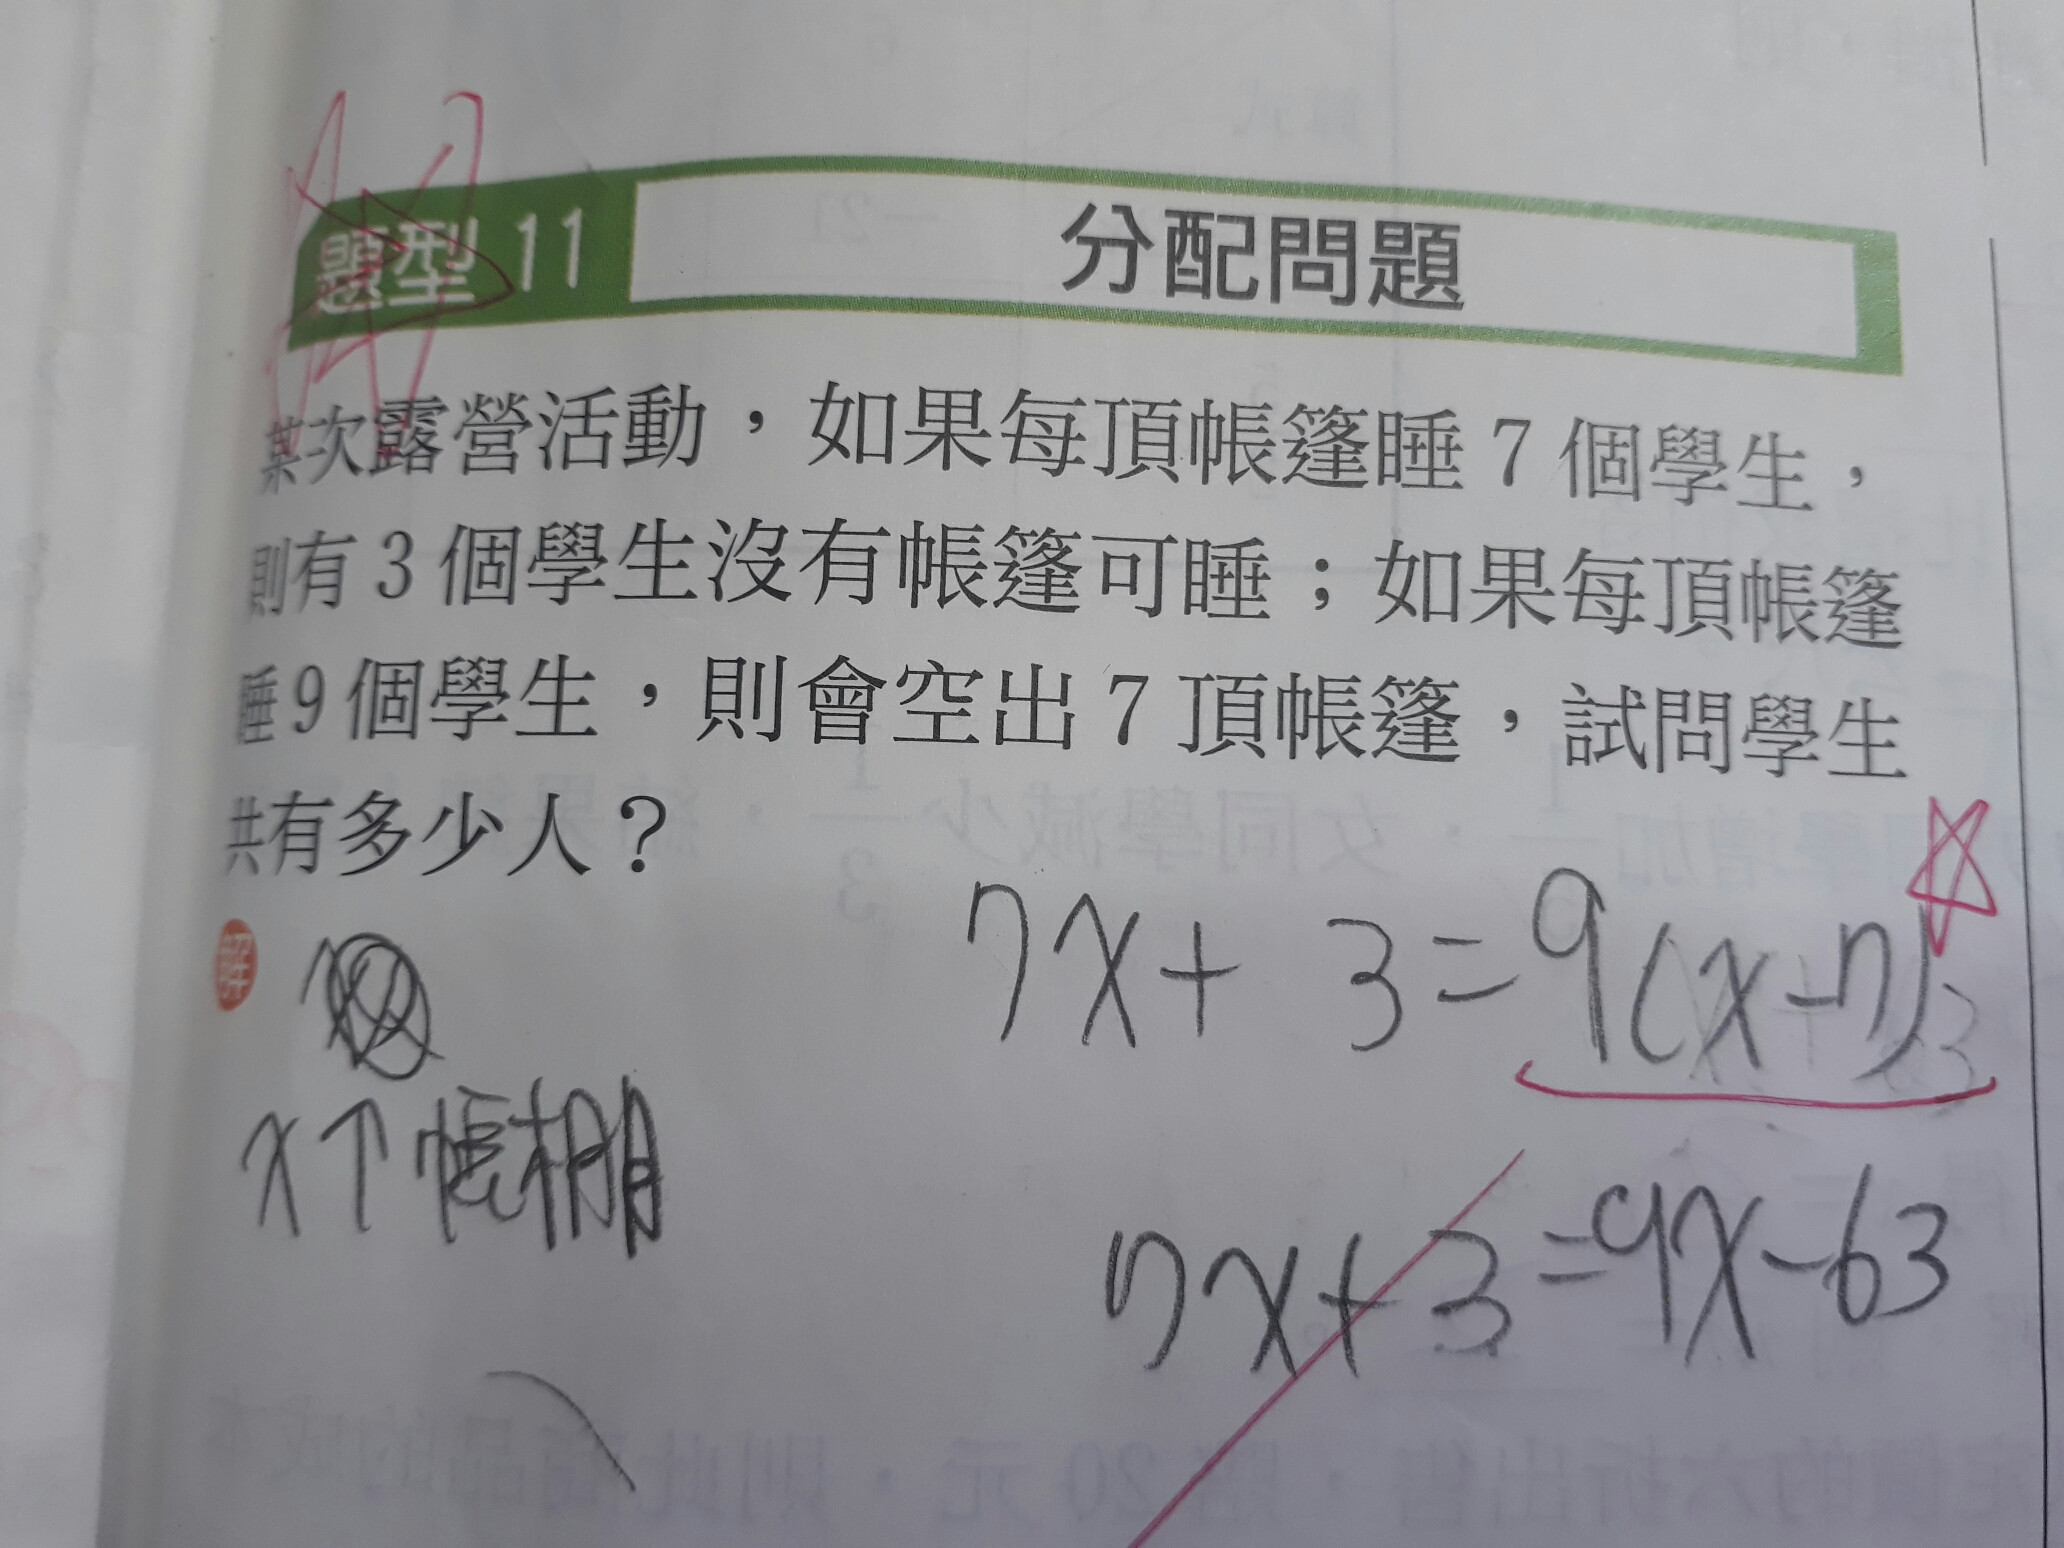 題型 11 分配問題
某次露營活動，如果每頂帳篷睡 7 個學生，
則有 3 個學生沒有帳篷可睡；如果每頂帳篷
睡 9 個學生，則會空出 7 頂帳篷，試問學生
共有多少人？
解
7x+3=9(x-7)
x个帳棚
7x+3=9x-63